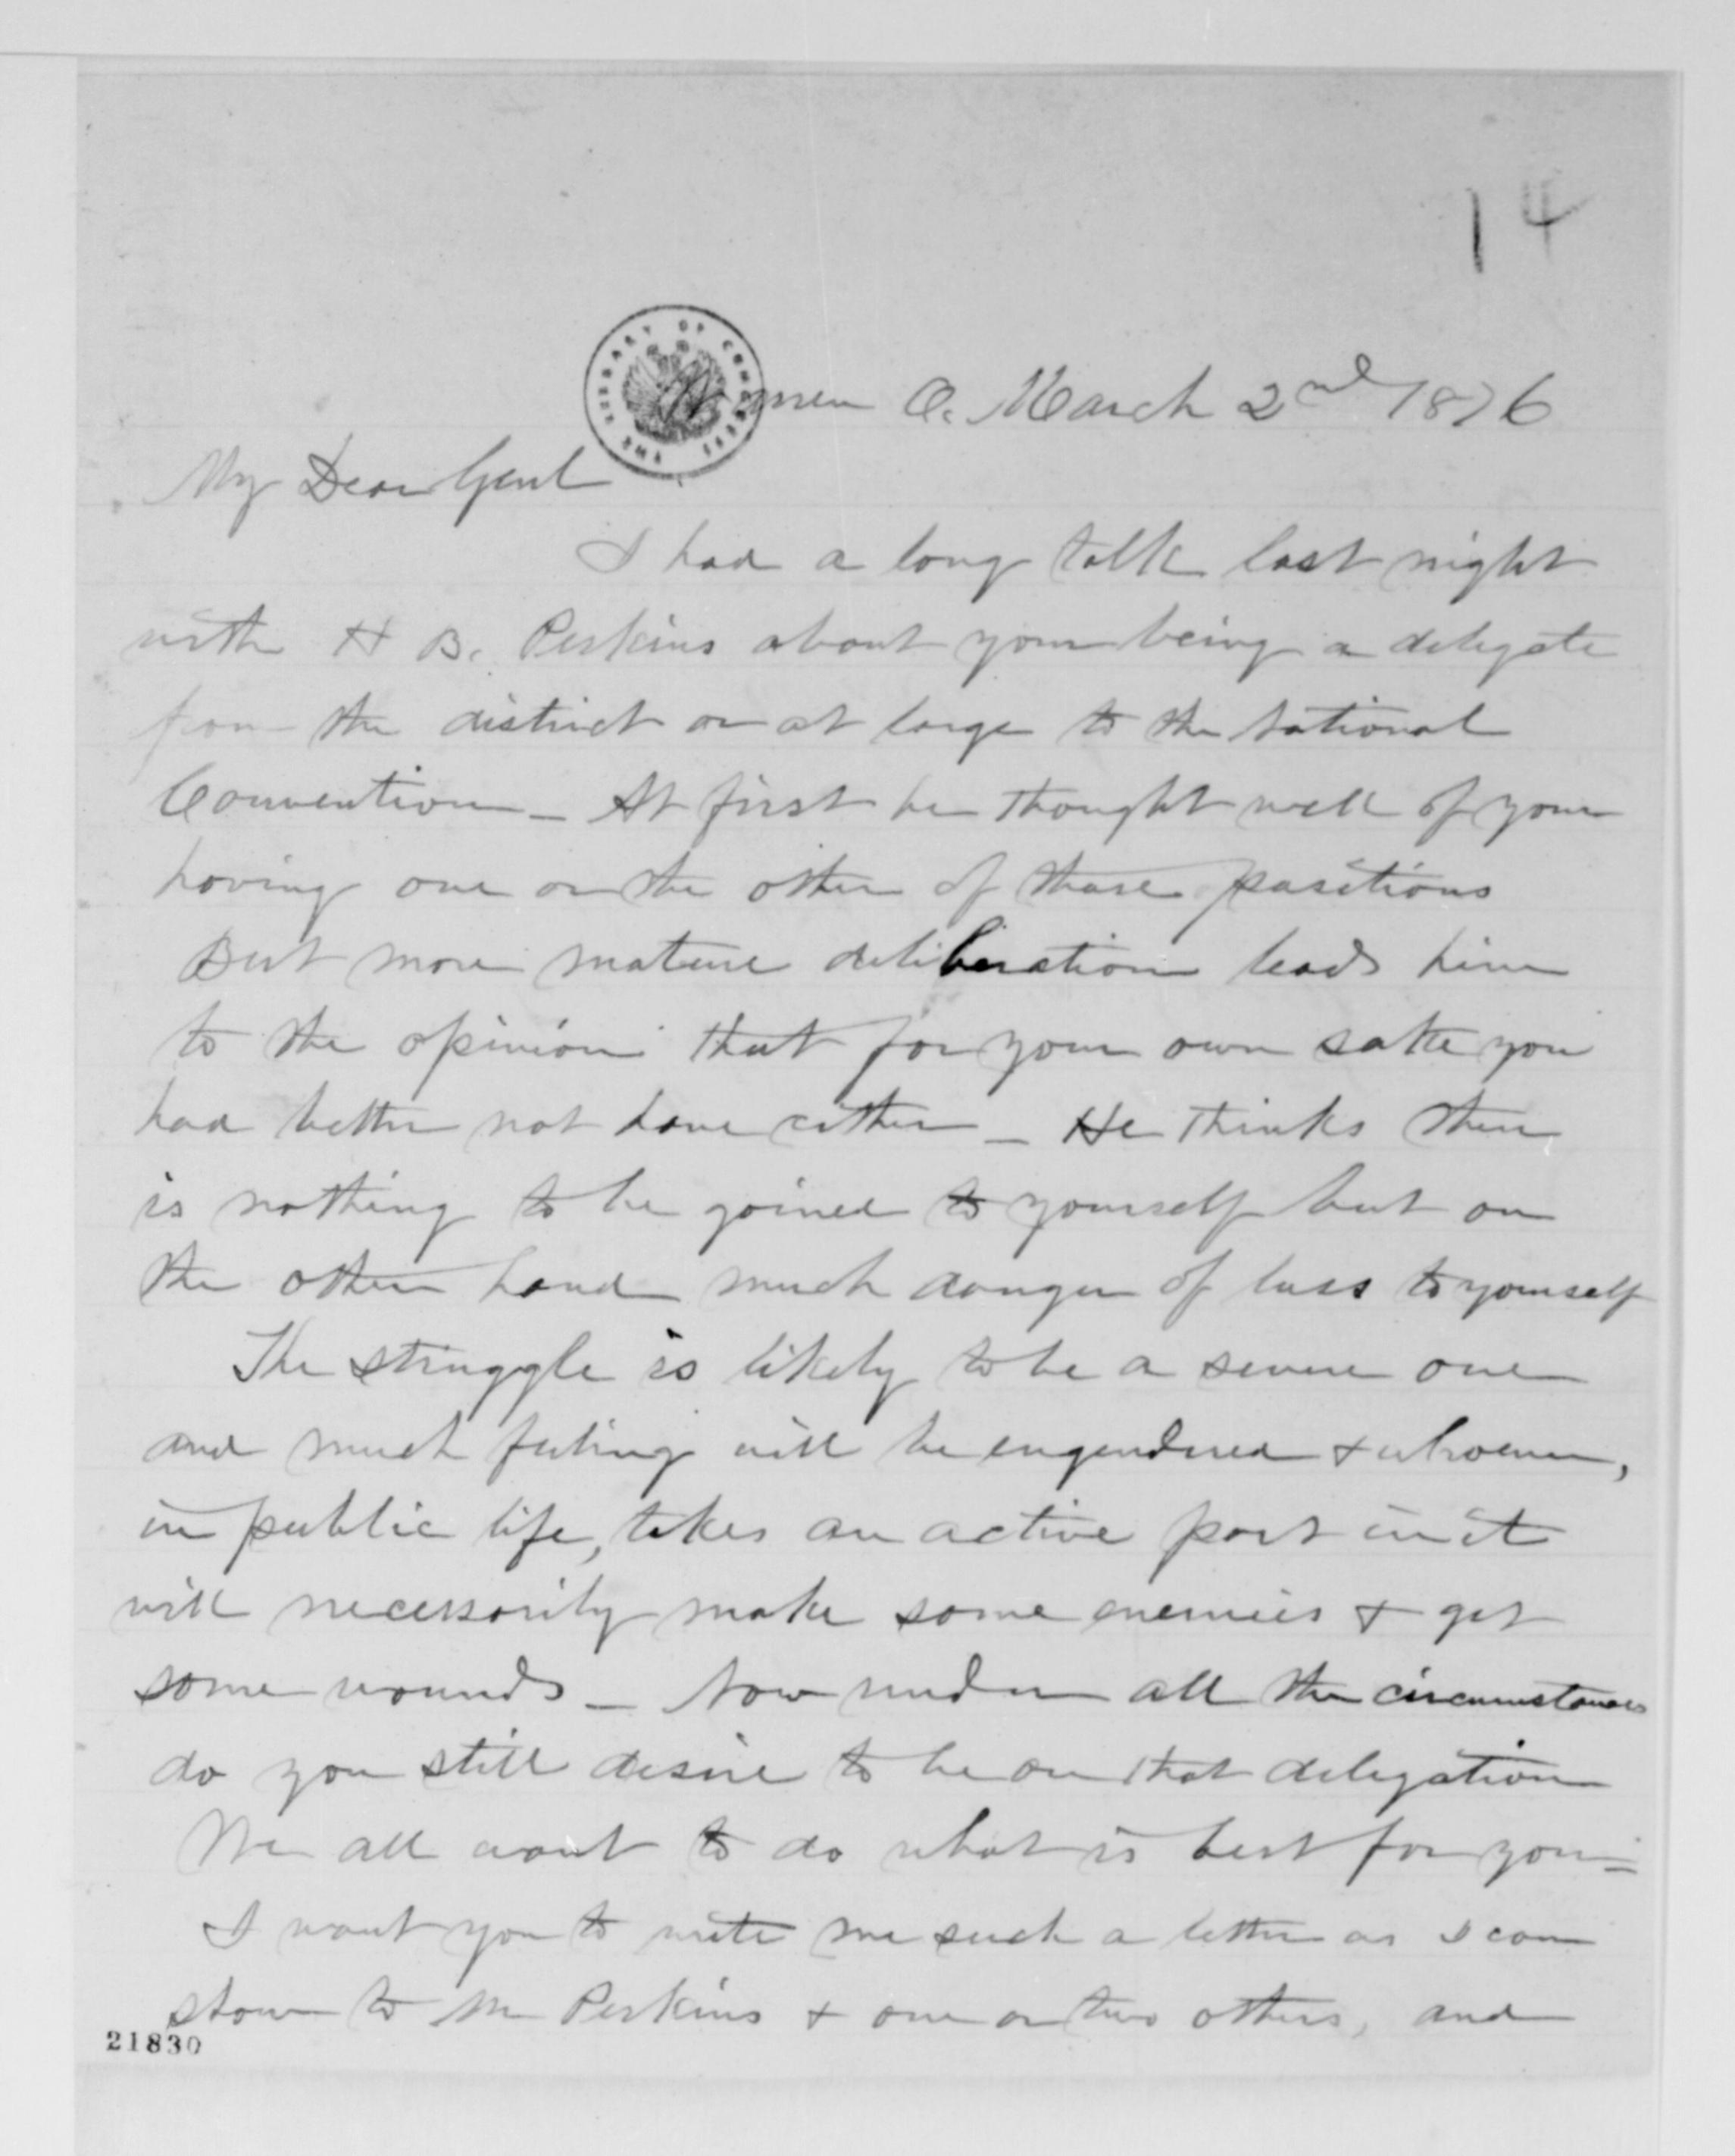 14
THE LIBRARY OF CONGRESS
Warren O. March 2nd 1876
My Dear Genl
I had a long talk last night
with H B. Perkins about your being a delegate
from the district or at large to the National
Convention - At first he thought well of your
having one or the other of those positions
But more mature deliberation leads him
to the opinion that for your own sake you
had better not have either - He thinks there
is nothing to be gained to yourself but on
the other hand much danger of loss to yourself
The struggle is likely to be a severe one
and much feeling will be engendered & whoever,
in public life, takes an active part in it
will necessarily make some enemies & get
some wounds - Now under all the circumstances
do you still desire to be on that delegation
We all want to do what is best for you -
I want you to write me such a letter as I can
show to Mr Perkins & one or two others, and
21830